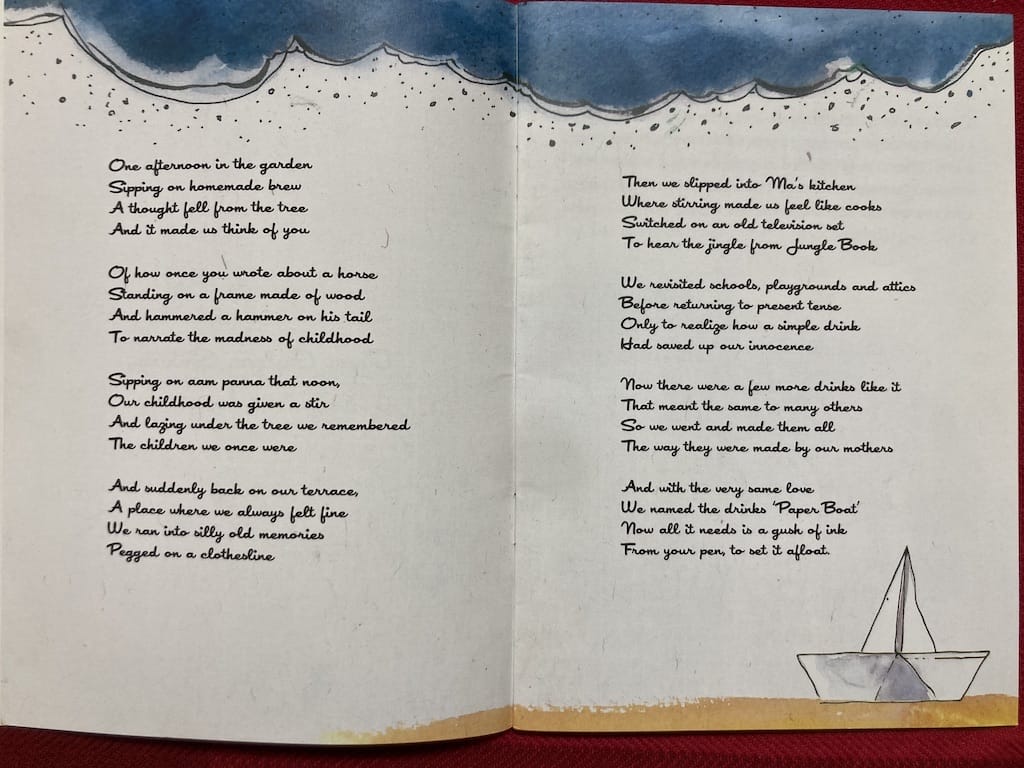 One afternoon in the garden
Sipping on homemade brew
A thought fell from the tree
And it made us think of you
Of how once you wrote about a horse
Standing on a frame made of wood
And hammered a hammer on his tail
To narrate the madness of childhood
Sipping on aam panna that noon,
Our childhood was given a stir
And lazing under the tree we remembered
The children we once were
And suddenly back on our terrace,
A place where we always felt fine
We ran into silly old memories
Pegged on a clothesline
Then we slipped into Ma's kitchen
Where stirring made us feel like cooks
Switched on an old television set
To hear the jingle from Jungle Book
We revisited schools, playgrounds and attics
Before returning to present tense
Only to realize how a simple drink
Had saved up our innocence
Now there were a few more drinks like it
That meant the same to many others
So we went and made them all
The way they were made by our mothers
And with the very same love
We named the drinks 'Paper Boat'
Now all it needs is a gush of ink
From your pen, to set it afloat.